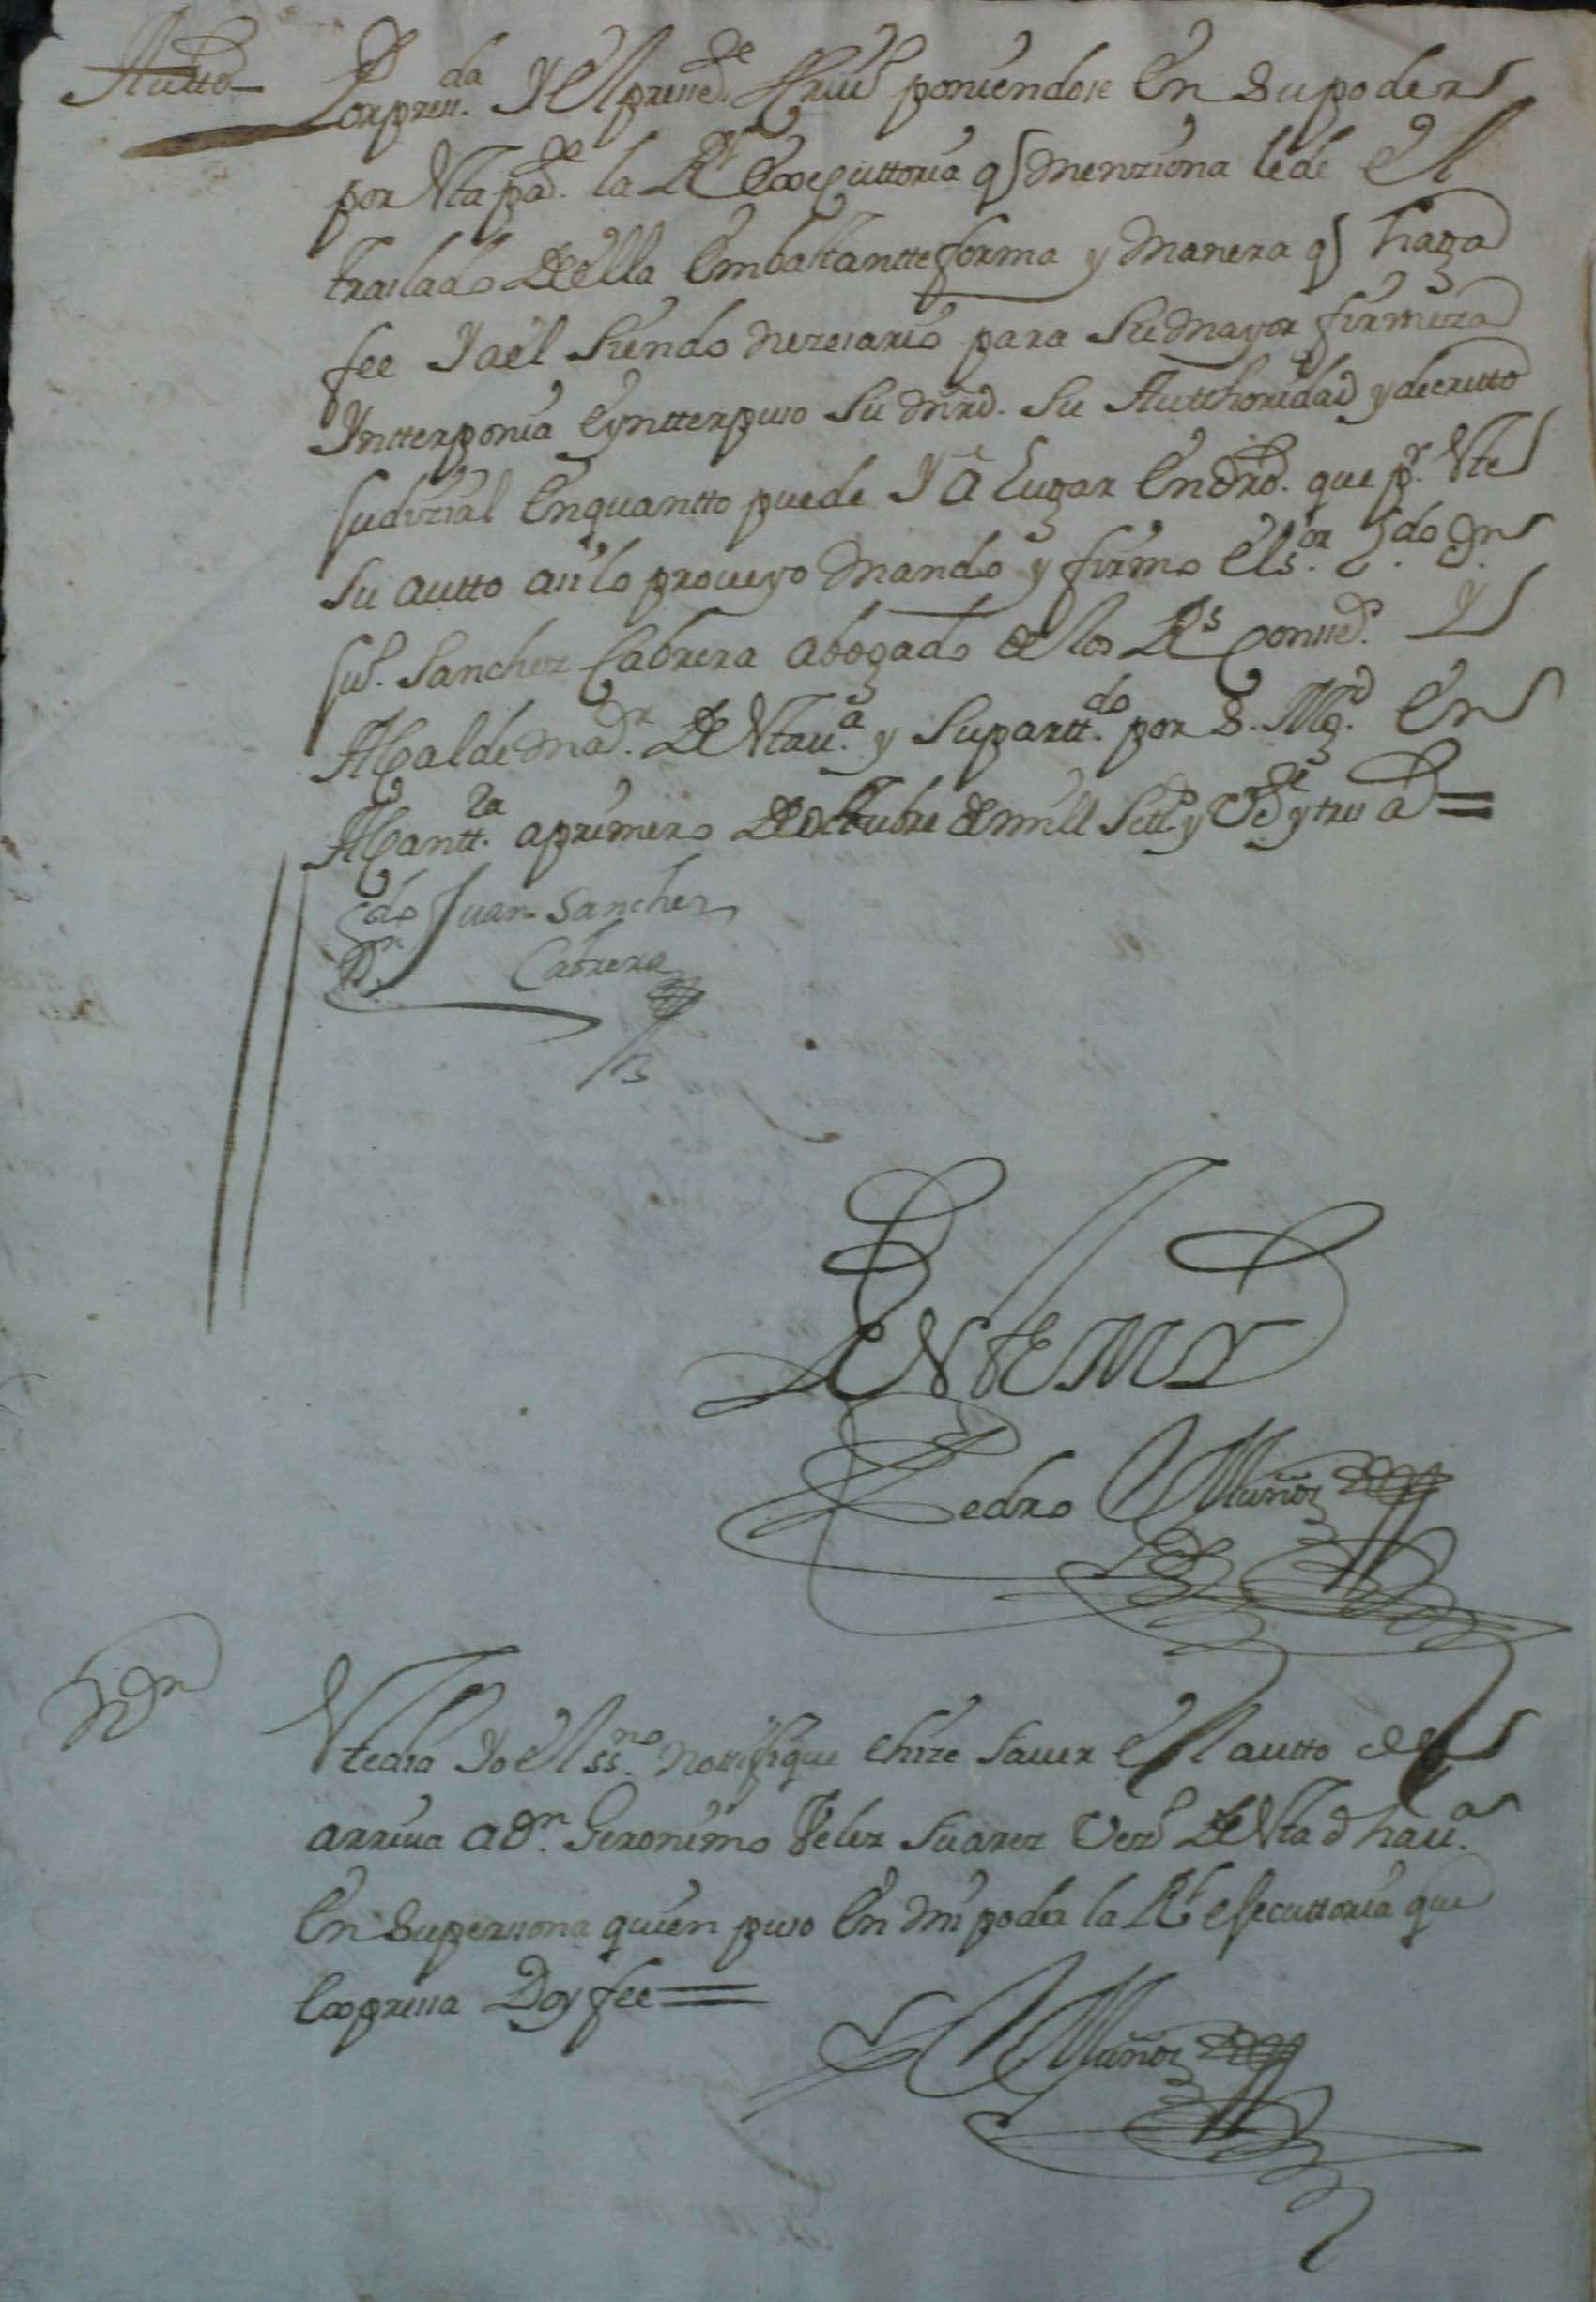 Autto Por presen.da Y el presen.te Escriu.o poniendose En Su poder
por Esta pa.te la Rl Executtoria q̃ Menziona le de El
traslado De Ella Em bastantte forma y Manera q̃ haga
fee Y a el Siendo nezesario para Su Mayor firmeza
Yntterponia E ynterpuso Su mrd. Su Autthoridad y decretto
Judizial En quantto puede Y ā lugar En dro. que p.r Este
Su autto assi lo proueyo Mando y firmo El s.or L.do Dn
Ju.o Sanchez Cabrera Abogado de los Rs Consej.s Y
Alcalde Ma.or De Esta u.a y Su partt.do por S. Mg.d En
Alcantt.ra a primero De Octubre de mill Sett.s y V.te y tres a.s =
L.do Dn Juan Sanchez
Cabrera
Ante My
Pedro Muñoz
Non
Este dia Yo El ss.no nottifique E hize Sauer El autto de
arriua a D.n Geronimo Velez Suarez Vez.o De Esta dha u.a
En Su persona quien puso En Mi poder la Rl Esecuttoria que
Expresa Doy fee =
Muñoz